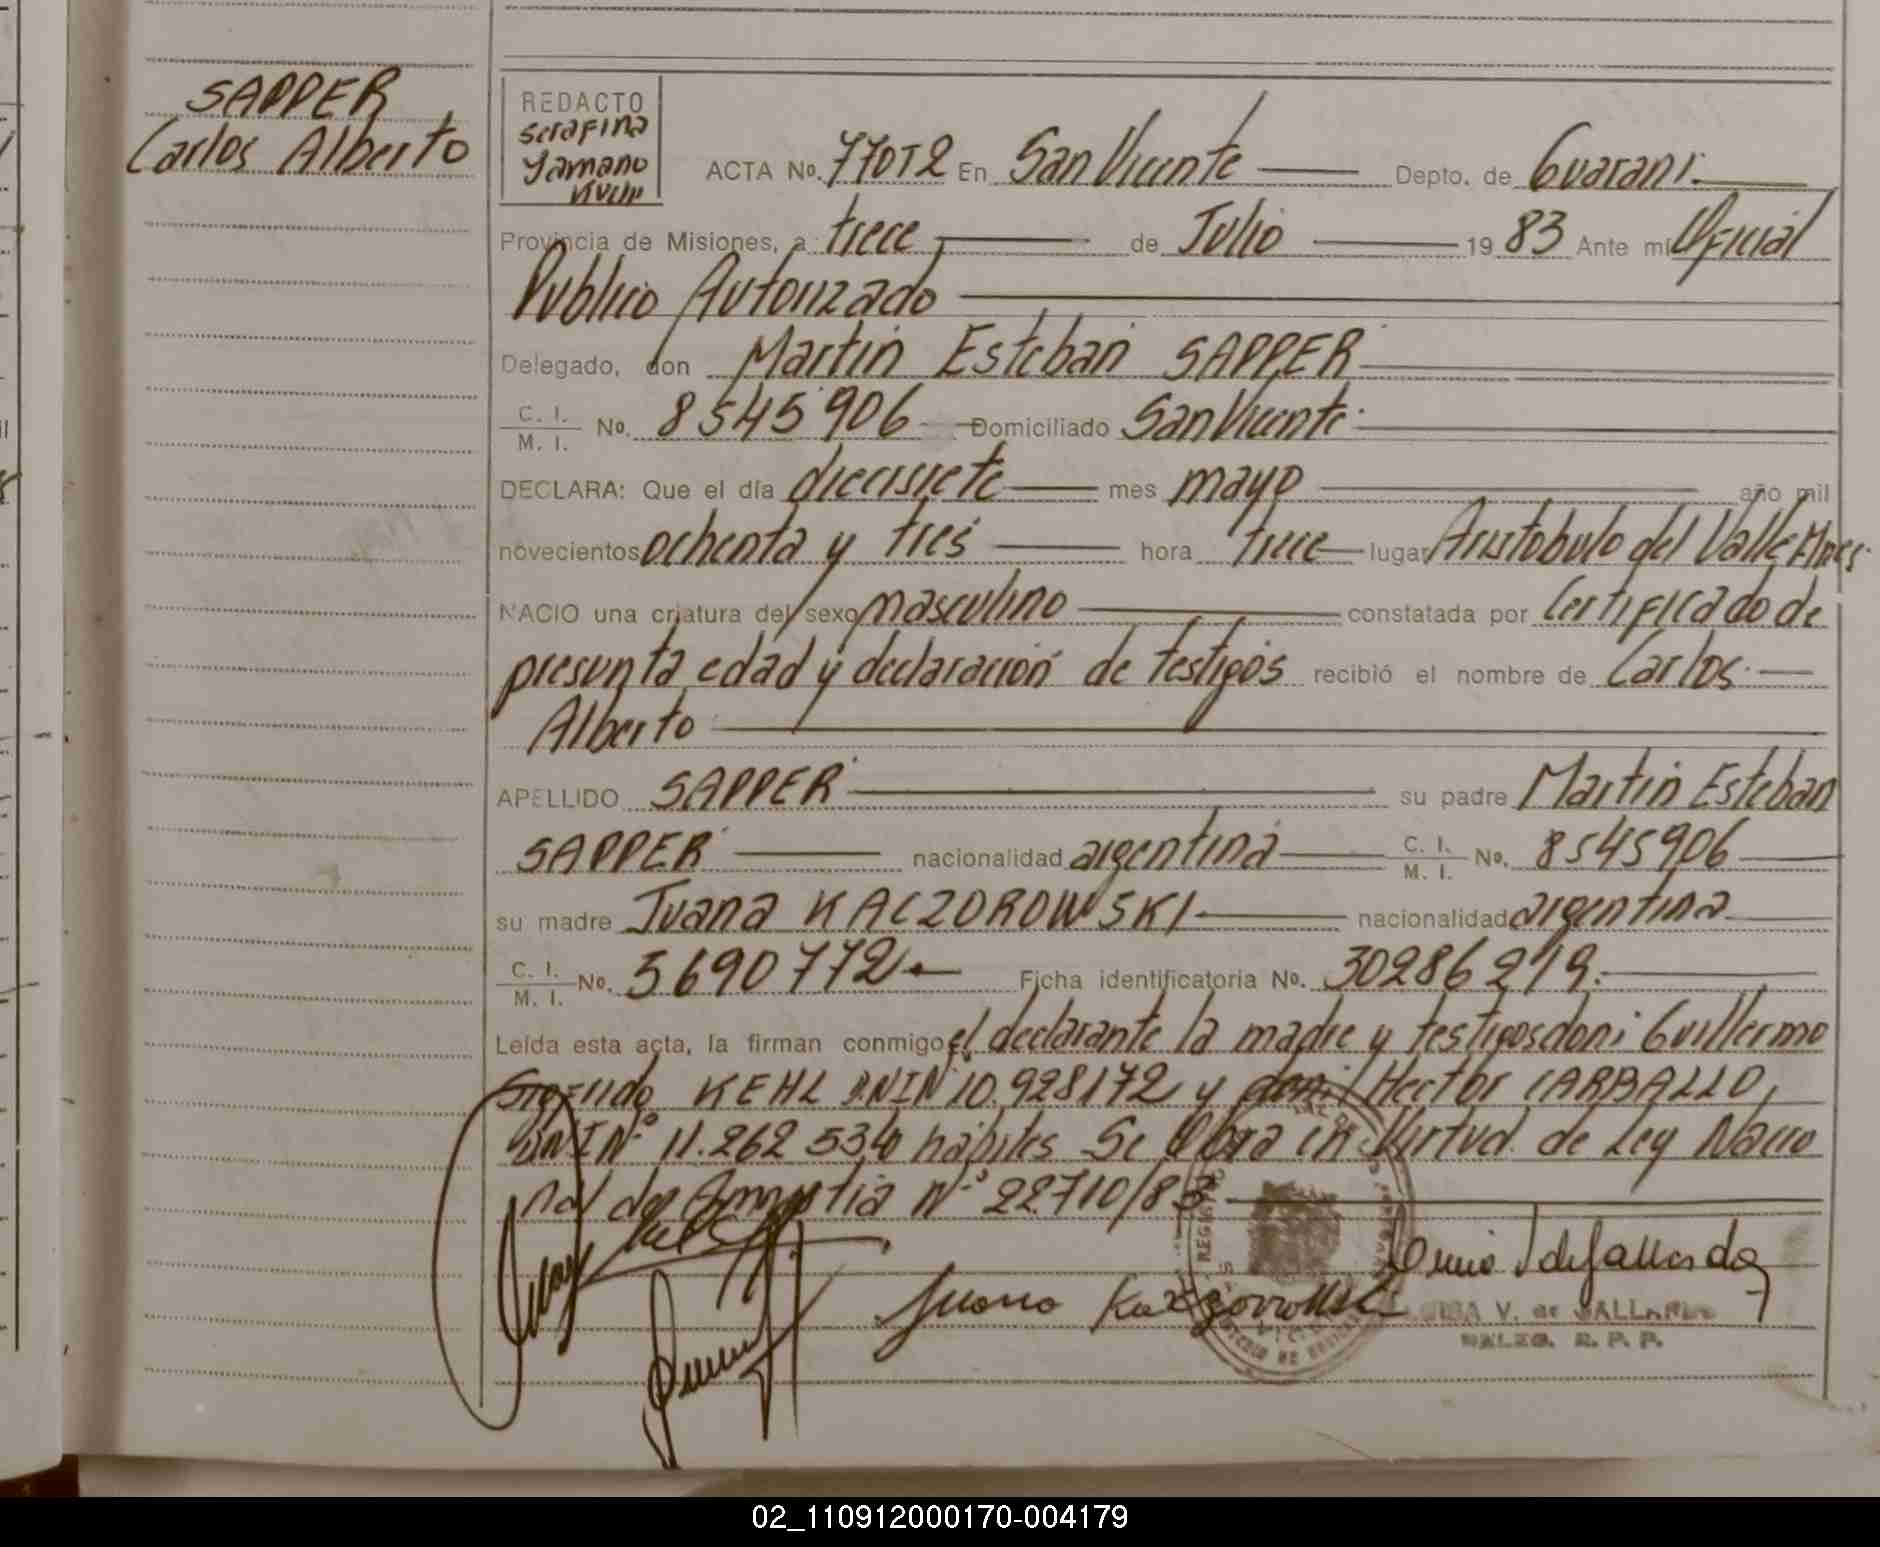 SAPPER
Carlos Alberto
REDACTO
Serafina
Yamano
ACTA No. 770T2 En San Vicente Depto. de Guarani.
Provincia de Misiones, a trece de Julio 1983 Ante mi Oficial
Publico Autorizado
Delegado, don Martin Esteban SAPPER
C. I.
M. I. No. 8545906 Domiciliado San Vicente.
DECLARA: Que el día diecisiete mes mayo año mil
novecientos ochenta y tres hora trece lugar Aristobulo del Valle Mnes.
NACIO una criatura del sexo masculino constatada por Certificado de
presunta edad y declaración de testigos recibió el nombre de Carlos.
Alberto
APELLIDO SAPPER su padre Martin Esteban
SAPPER nacionalidad argentina C. I.
M. I. No. 8545906
su madre Juana KACZOROWSKI nacionalidad argentina
C. I.
M. I. No. 5690772 Ficha identificatoria No. 30286219.
Leída esta acta, la firman conmigo el declarante la madre y testigos don: Guillermo
KEHL DNI Nº 10.928172 y don: Hector CARBALLO,
DNI Nº 11.262 534 hábiles Se Obra en Virtud de Ley Nacio
nal de Amnistia Nº 22710/83
Juana Kaczorowski
V. de GALLARDO
DALEG. R. P. P.
02_110912000170-004179